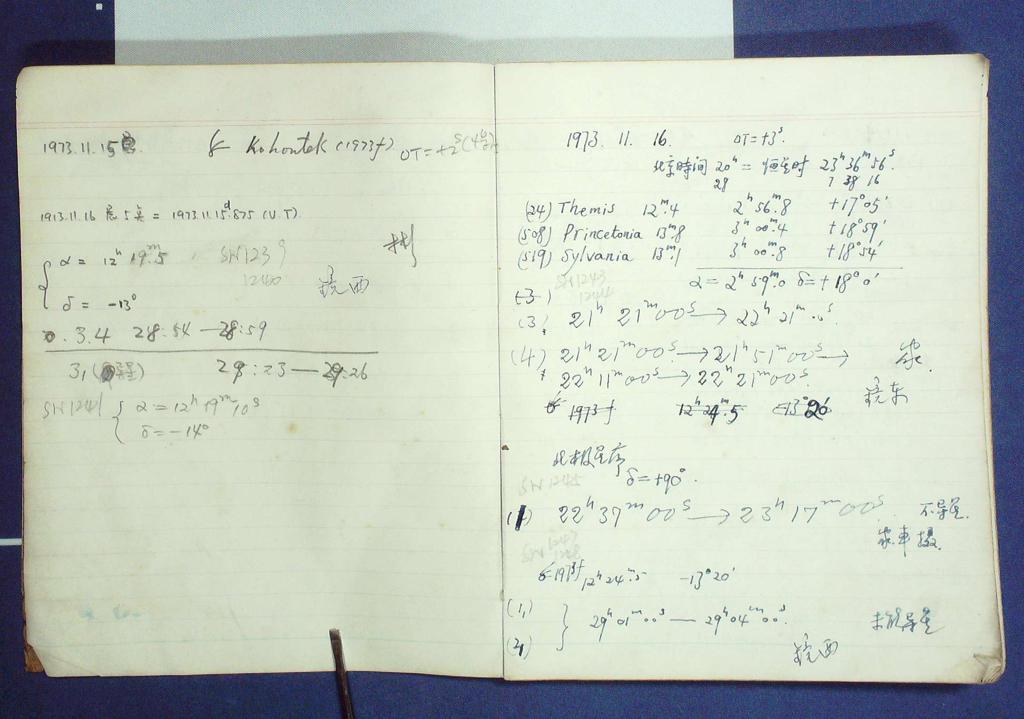 1973.11.15
Kohoutek (1973f) DT=+2ˢ
1973.11.16 = 1973.11.15ᵈ.875 (U.T)
α = 12ʰ 19ᵐ.5 SN1239
1240
δ = -13°
西
3.4 28:54 — 28:59
3, 29:23 — 29:26
SN1241 { α = 12ʰ 19ᵐ 10ˢ
δ = -14°
1973. 11. 16. DT=+3ˢ
北京時间 20ʰ = 恒星时 23ʰ36ᵐ56ˢ
28 7 38 16
(24) Themis 12ᵐ.4 2ʰ56ᵐ.8 +17°05′
(508) Princetonia 13ᵐ.8 3ʰ00ᵐ.4 +18°59′
(519) Sylvania 13ᵐ.1 3ʰ00ᵐ.8 +18°54′
SN1243
1244
α = 2ʰ59ᵐ.0 δ=+18°0′
(3) 21ʰ 21ᵐ00ˢ → 22ʰ 21ᵐ00ˢ
(4) 21ʰ 21ᵐ00ˢ → 21ʰ 51ᵐ00ˢ →
22ʰ 11ᵐ00ˢ → 22ʰ 21ᵐ00ˢ
东
1973f 12ʰ24ᵐ.5 -13°20′
北极星序
SN1245 δ=+90°
(1) 22ʰ 37ᵐ00ˢ → 23ʰ 17ᵐ00ˢ 不导星
SN1247
1248
1973f 12ʰ24ᵐ.5 -13°20′
(1) } 29ʰ01ᵐ00ˢ — 29ʰ04ᵐ00ˢ 未能导星
西